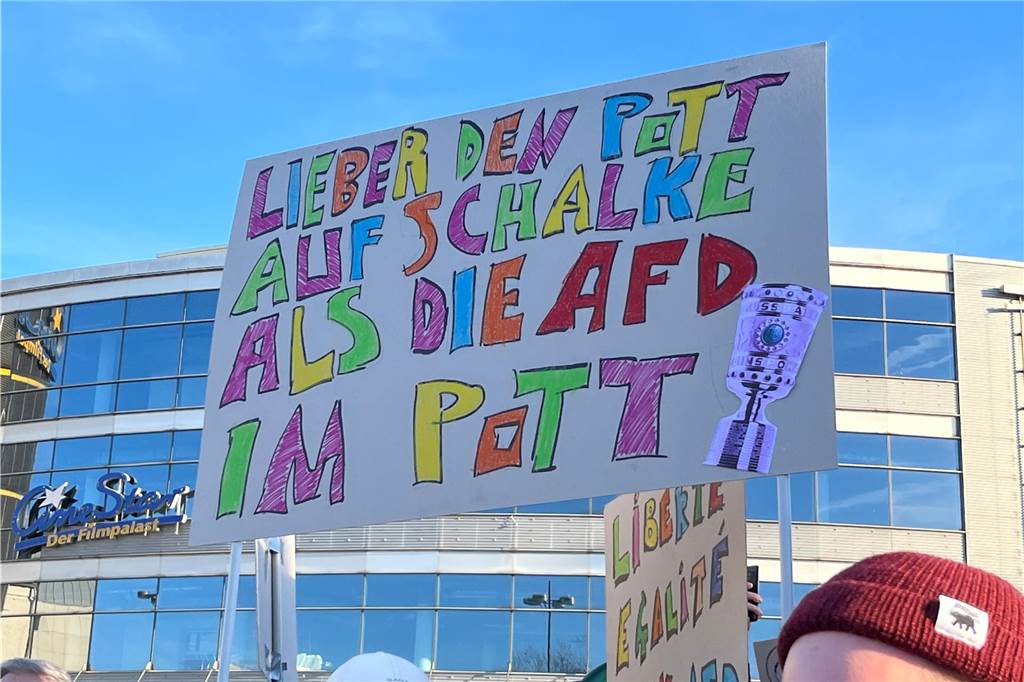 LIEBER DEN POTT
AUF SCHALKE
ALS DIE AFD
IM POTT
CineStar
Der Filmpalast
LIBERTÉ
EGALITÉ
AFD